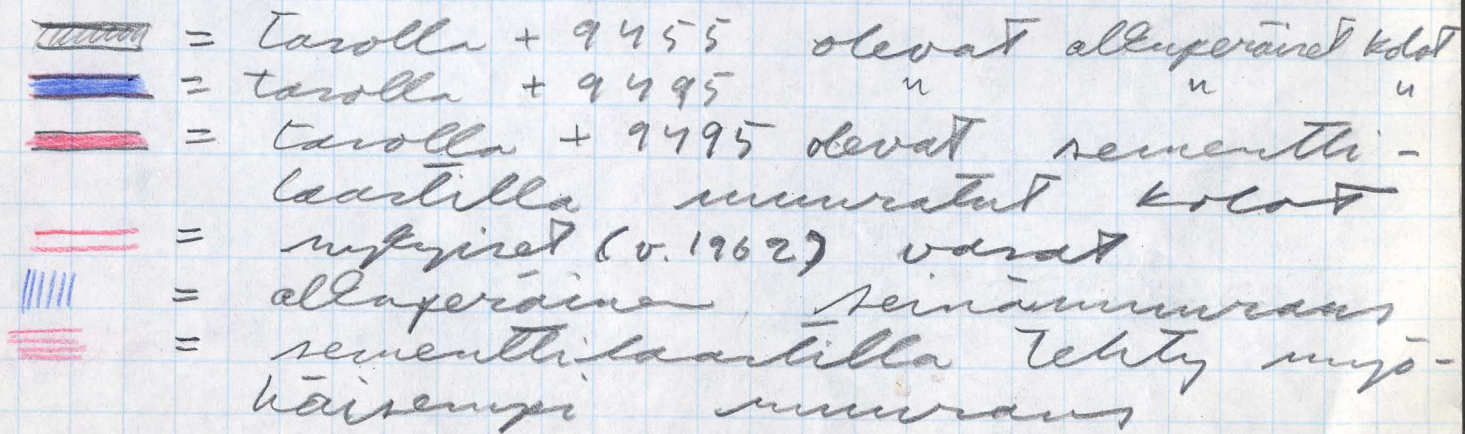 = tasolla + 9455 olevat alkuperäiset kolot
= tasolla + 9495 " " "
= tasolla + 9495 olevat sementti-
laastilla muuratut kolot
= nykyiset (v. 1962) vasat
= alkuperäinen seinämuuraus
= sementtilaastilla tehty myö-
häisempi muuraus